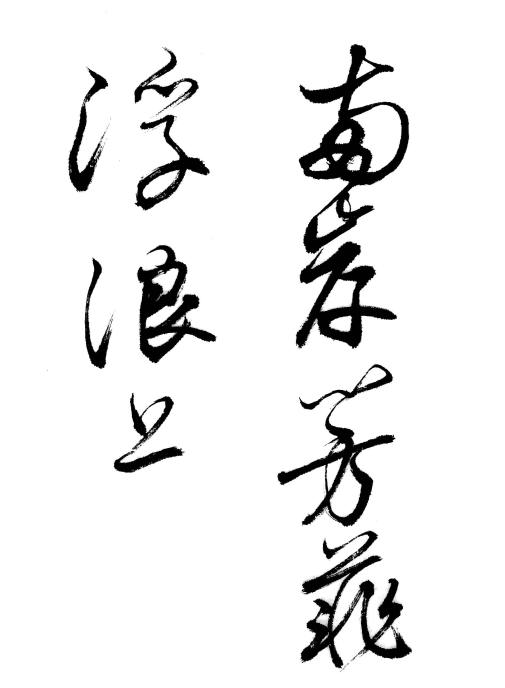 南岸芳菲
浮浪上